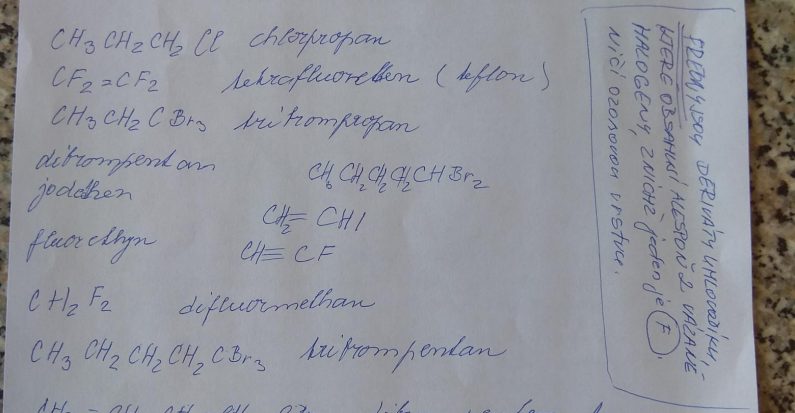 CH3 CH2 CH2 Cl chlorpropan
CF2=CF2 tetrafluorethen (teflon)
CH3 CH2 C Br3 tribrompropan
dibrompentan CH3 CH2 CH2 CH2 CHBr2
jodethen CH2= CHI
fluorethyn CH≡ CF
CH2 F2 difluormethan
CH3 CH2 CH2 CH2 CBr3 tribrompentan
FREONY JSOU DERIVÁTY UHLOVODÍKU,
KTERÉ OBSAHUJÍ ALESPOŇ 2 VÁZANÉ
HALOGENY, Z NICHŽ jeden je F.
Ničí ozonovou vrstvu.